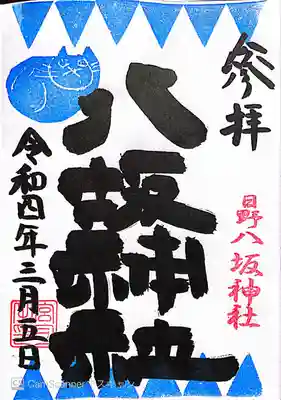 参拝
日野八坂神社
八坂神社
令和四年三月五日
CS CamScanner でスキャン